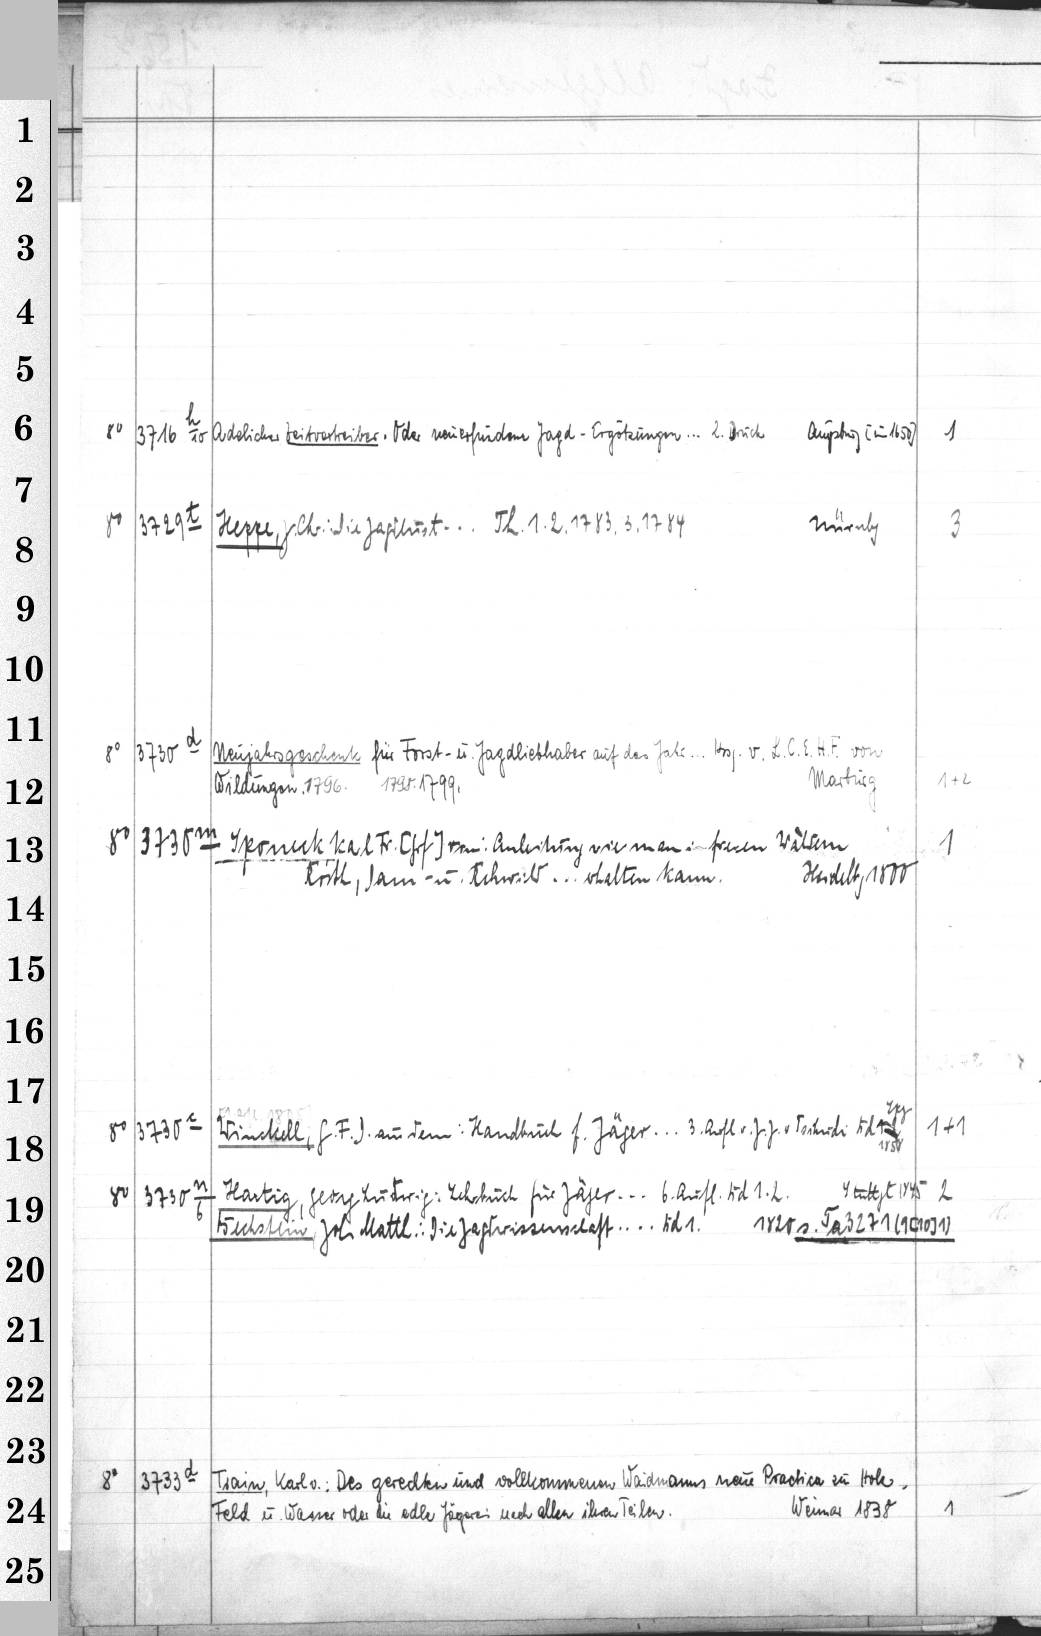 1
2
3
4
5
6
8° 3716 h/10 Adelicher Zeitvertreiber. Oder neuerfundene Jagd-Ergötzungen ... 2. Druck Augsburg [um 1650] 1
7
8° 3729 t Heppe, J. Chr.: Die Jagdlust ... Th. 1.2. 1783. 3. 1784 Nürnbg 3
8
9
10
11
8° 3730 d Neujahrsgeschenk für Forst- u. Jagdliebhaber auf das Jahr... Hsg. v. L.C.E.H.F. von
12
Wildungen. 1796. 1798. 1799. Marburg 1+2
13
8° 3730 m Sponeck Karl Fr. [Grf] von: Anleitung wie man in freien Wäldern 1
Roth, Dam- u. Rehwild ... erhalten kann. Heidelbg 1800
14
15
16
17
8° 3730 Winckell, G. F. D. aus dem: Handbuch f. Jäger ... 3. Aufl v. J. J. v Tschudi Bd Lpz 1858 1+1
18
8° 3730 n/6 Hartig, Georg Ludwig: Lehrbuch für Jäger ... 6. Aufl. Bd 1.2. Stuttgt 1845 2
19
Bechstein, Joh. Matth.: Die Jagdwissenschaft .... Bd 1. 1820 s. Ta 3271 (1[10]1)
20
21
22
23
8° 3733 d Train, Karl v.: Des gerechten und vollkommenen Waidmanns neue Practica zu Holz,
24
Feld u. Wasser oder die edle Jägerei nach allen ihren Teilen. Weimar 1838 1
25